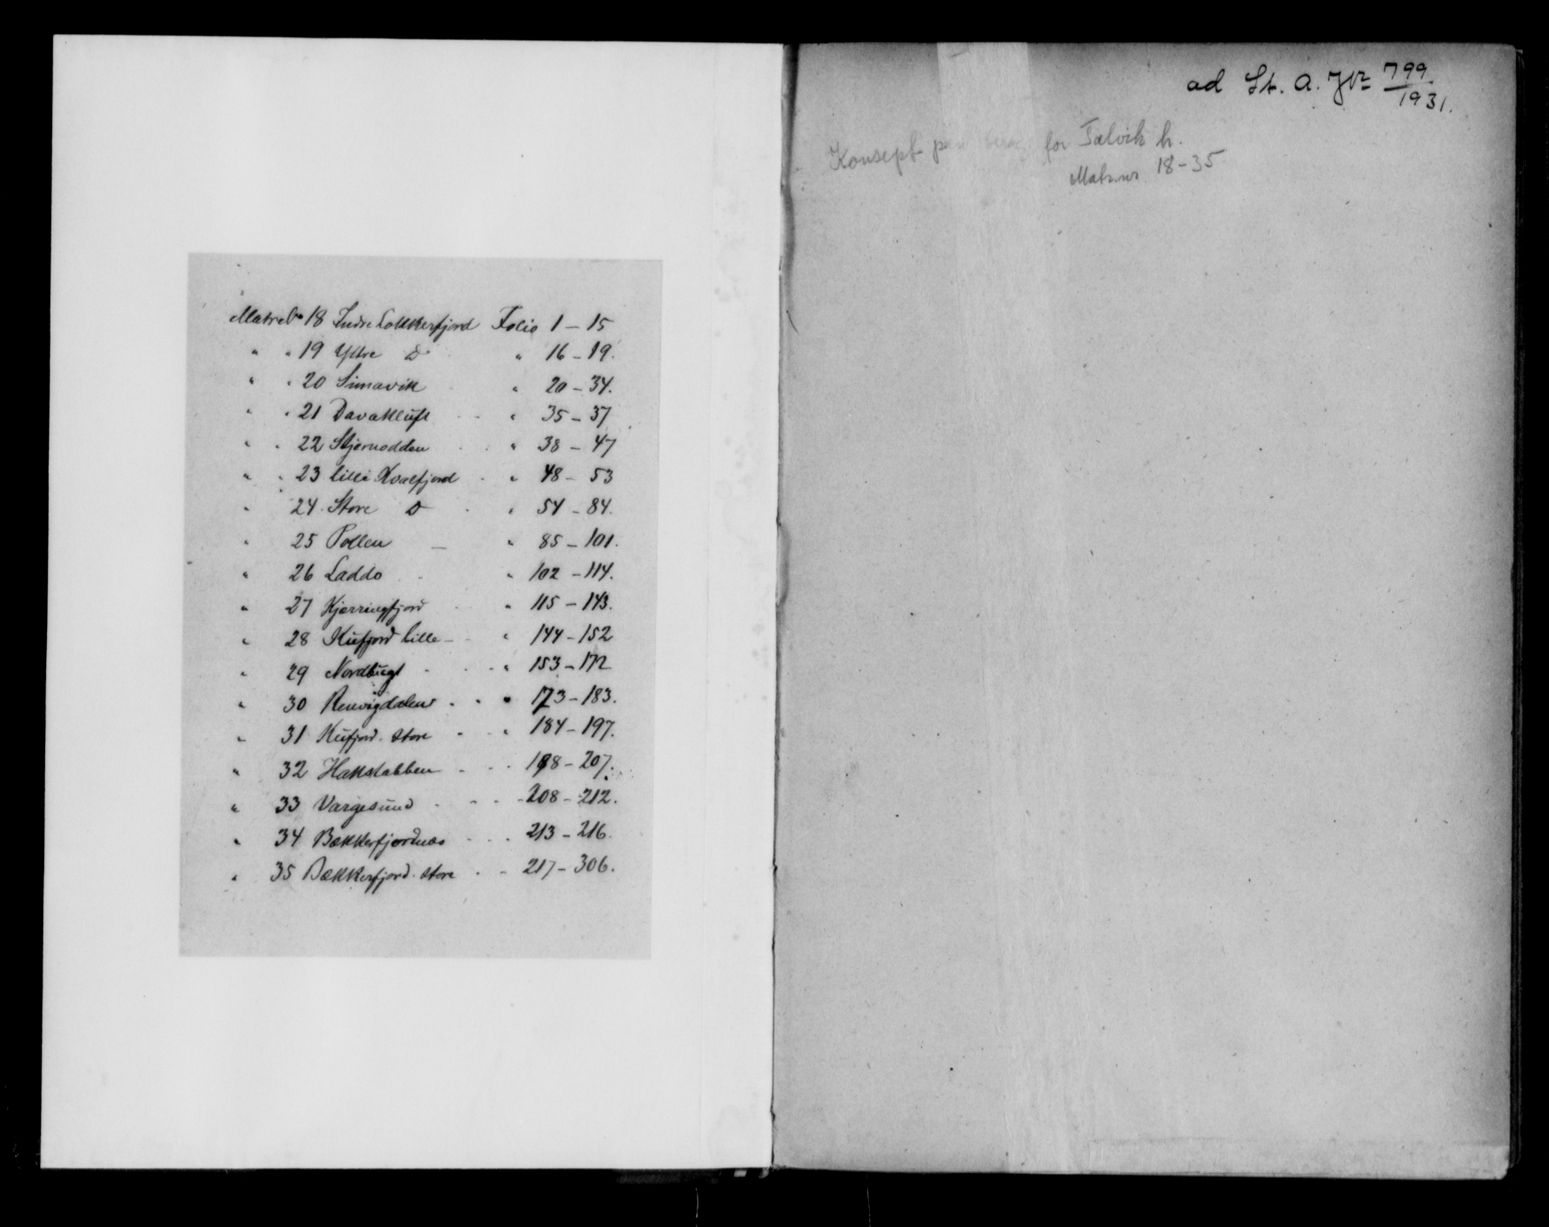 Matr No 18 Indre Lokkerfjord Folio 1 – 15
" " 19 Ytre Do " 16 – 19.
" " 20 Simavik " 20 – 34.
" " 21 Davakluft " 35 – 37
" " 22 Stjernodden " 38 – 47
" " 23 Lille Korsfjord " 48 – 53
" 24 Store Do " 54 – 84.
" 25 Pollen — " 85 – 101.
" 26 Laddo " 102 – 114.
" 27 Kjærringfjord " 115 – 143.
" 28 Kufjord Lille " 144 – 152
" 29 Nordbugt " 153 – 172
" 30 Renvigdalen " 173 – 183.
" 31 Kufjord store " 184 – 197.
" 32 Hakstabben 198 – 207.
" 33 Vargesund 208 – 212.
" 34 Bækkerfjordnæs 213 – 216.
" 35 Bækkerfjord store 217 – 306.
ad St. A. Jr 799/1931.
Konsept for Talvik h.
Matr.nr 18 – 35